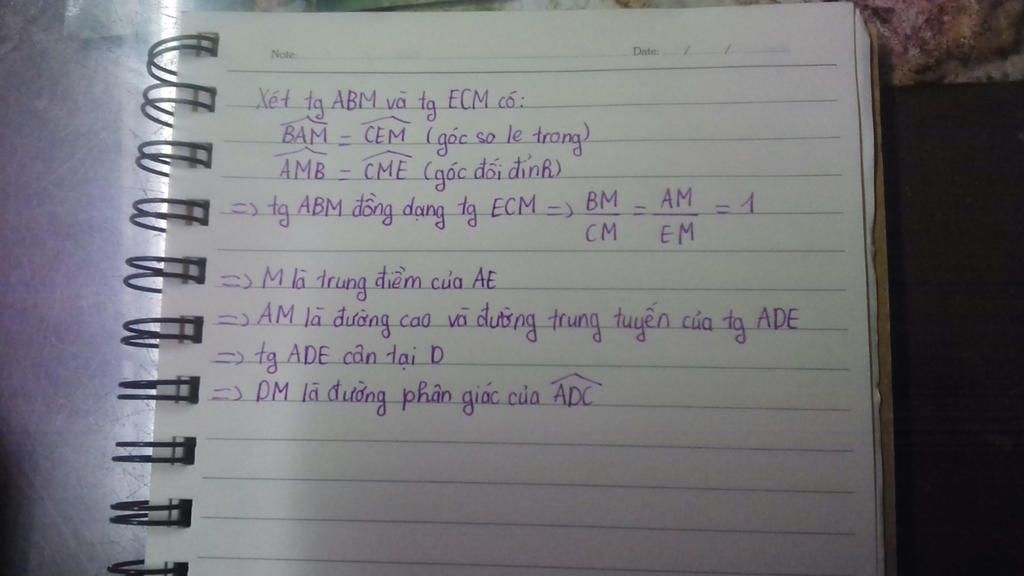 Note:
Date: / /
Xét tg ABM và tg ECM có:
BAM = CEM (góc so le trong)
AMB = CME (góc đối đỉnh)
=> tg ABM đồng dạng tg ECM => BM/CM = AM/EM = 1
=> M là trung điểm của AE
=> AM là đường cao và đường trung tuyến của tg ADE
=> tg ADE cân tại D
=> DM là đường phân giác của ADC